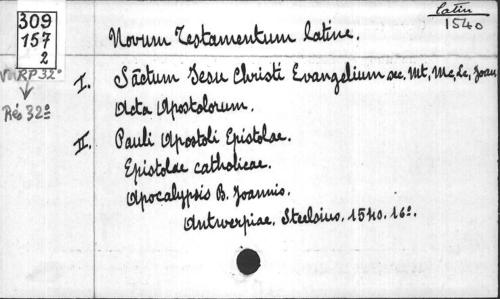 309
157
2
latin
1540
Novum Testamentum latine.
Voir RP 32º
Rés 32º
I. Sāctum Jesu Christi Evangelium sec. Mt, Mc, Lc, Joan
Acta Apostolorum.
II. Pauli Apostoli Epistolae.
Epistolae catholicae.
Apocalypsis B. Joannis.
Antwerpiae, Steelsius, 1540. 16º.